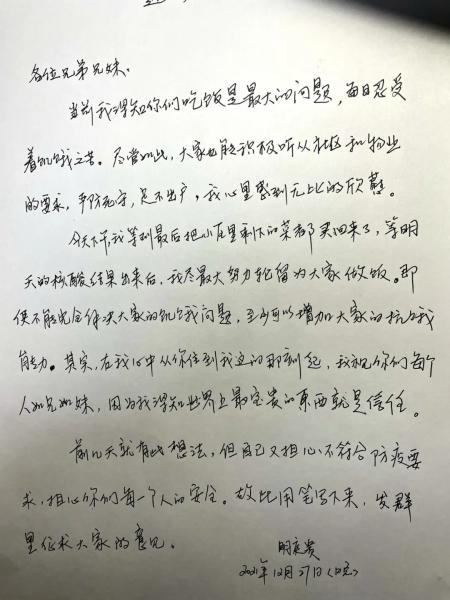 各位兄弟兄妹:
当前我得知你们吃饭是最大的问题,每日忍受
着饥饿之苦。尽管如此,大家也能积极听从社区和物业
的要求,严防死守,足不出户,我心里感到无比的欣慰。
今天下午我等到最后把小店里剩下的菜都买回来了,等明
天的核酸结果出来后,我尽最大努力轮留为大家做饭。即
使不能完全解决大家的饥饿问题,至少可以增加大家的抗饿
能力。其实,在我心中从你住到我这的那刻起,我视你们每个
人如兄如妹,因为我得知世界上最宝贵的东西就是信任。
前几天就有此想法,但自己又担心不符合防疫要
求,担心你们每一个人的安全。故此用笔写下来,发群
里征求大家的意见。
2021年12月27日